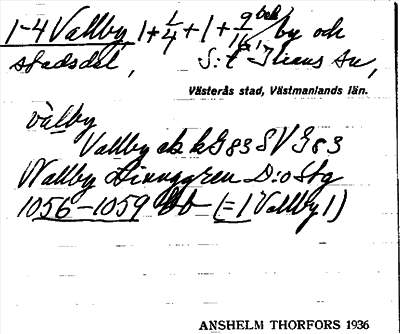 1-4 Vallby 1+1/4+1+9/16 bel. by och
stadsdel, S:t Ilians sn,
Västerås stad, Västmanlands län.
vàlby
Vallby ek kG83 SVG83
Wallby Linnagren D:o Stg
1056-1059 bb (=1 Vallby 1)
ANSHELM THORFORS 1936